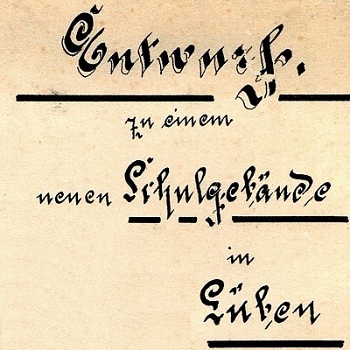 Entwurf.
zu einem
neuen Schulgebäude
in
Lüben